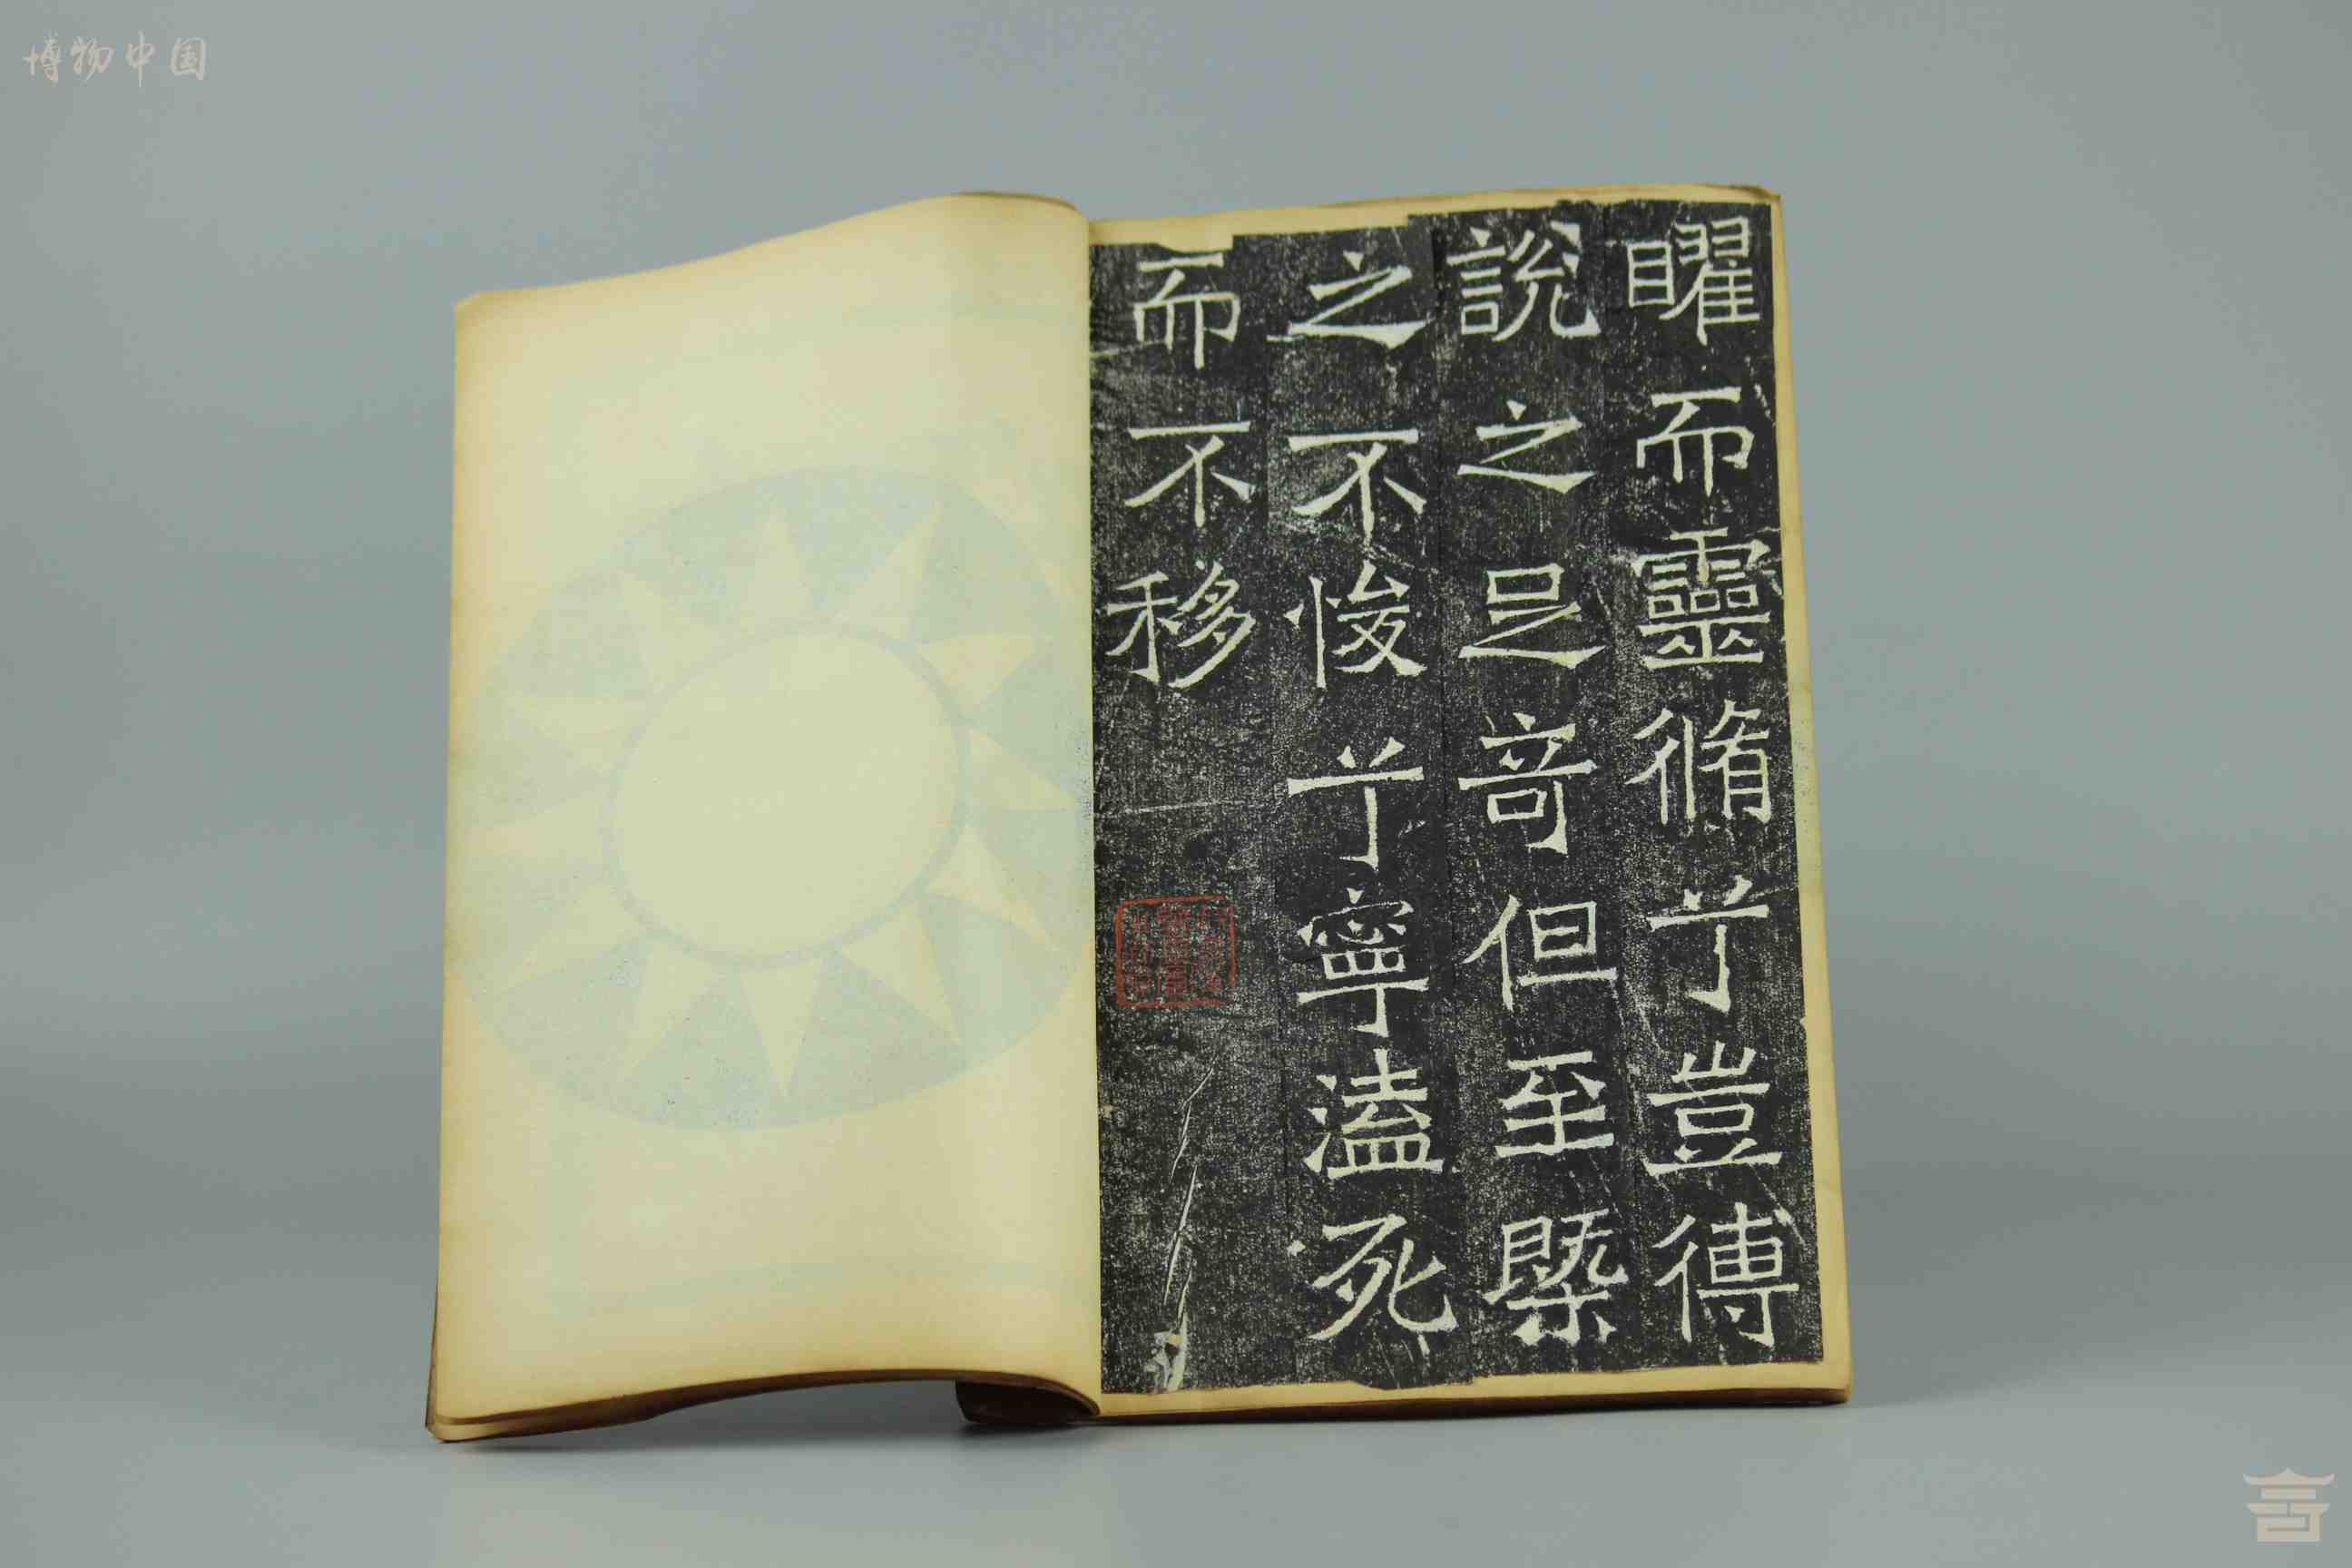 博物中国
矅而靈脩兮豈傅
說之足奇但至槩
之不悛兮寧溘死
而不移